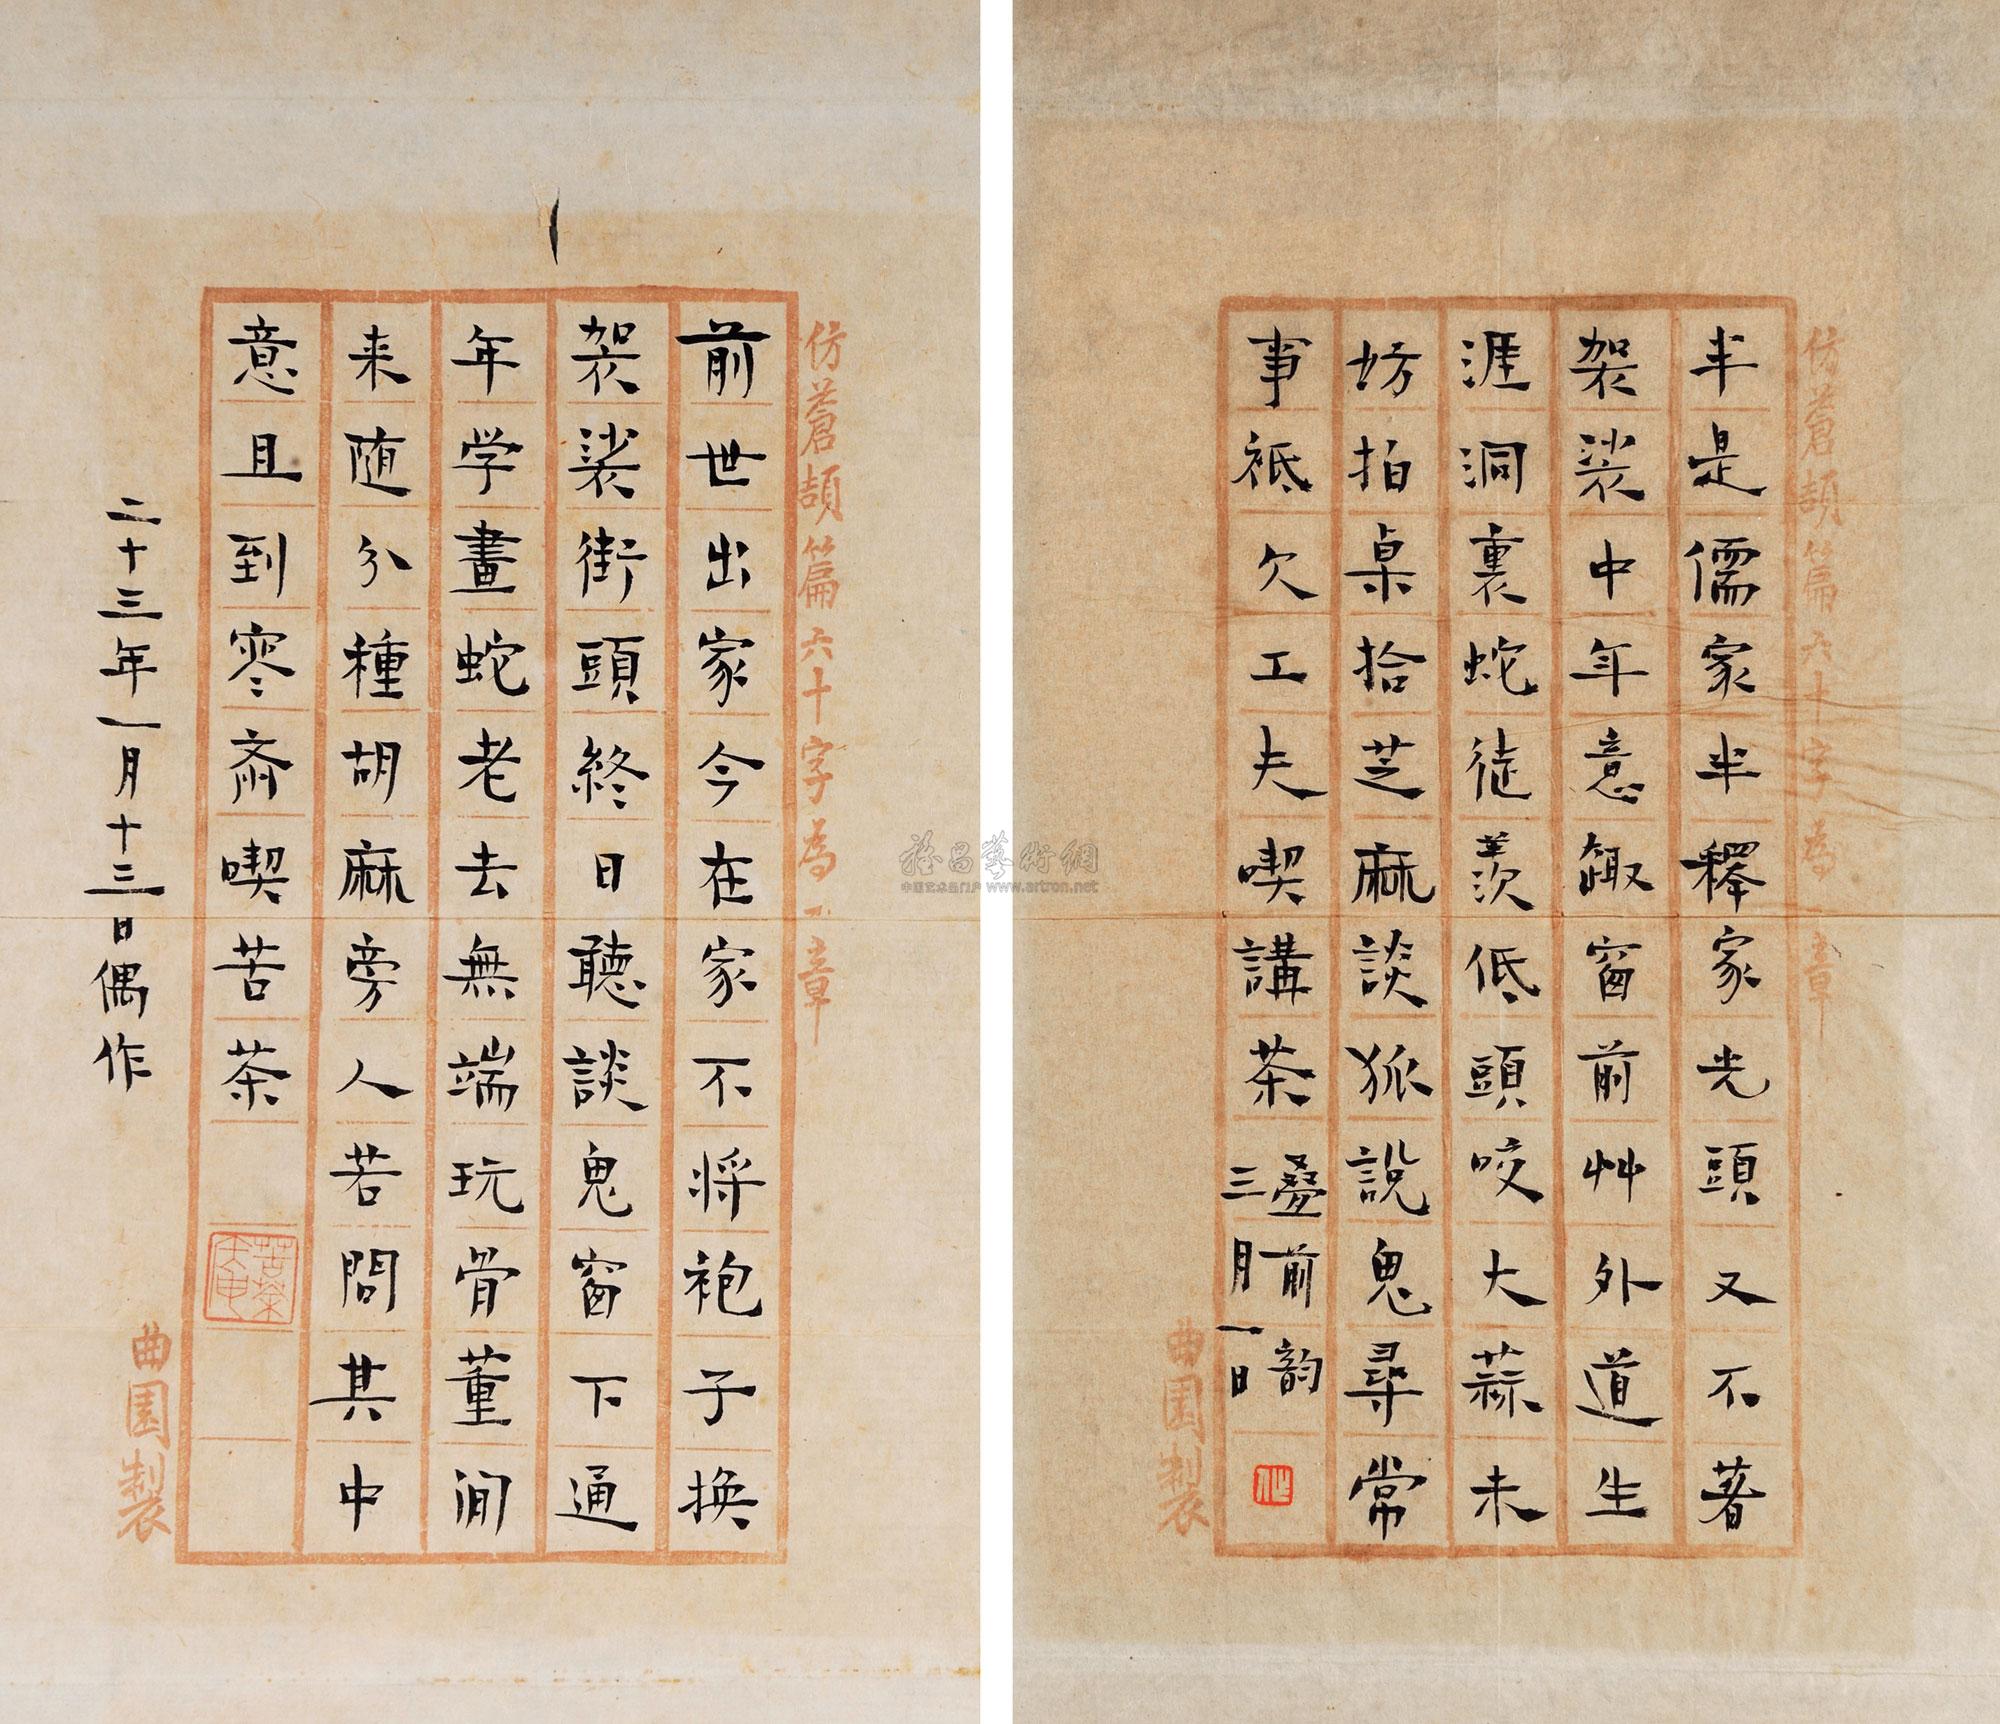 半是儒家半釋家光頭又不著
袈裟中年意趣窗前艸外道生
涯洞裏蛇徒羨低頭咬大蒜未
妨拍桌拾芝麻談狐說鬼尋常
事祗欠工夫喫講茶
疊前韵
三月一日
仿蒼頡篇六十字為一章
曲園製
前世出家今在家不將袍子換
袈裟街頭終日聽談鬼窗下通
年学畫蛇老去無端玩骨董閒
来随分種胡麻旁人若問其中
意且到寒斎喫苦茶
二十三年一月十三日偶作
仿蒼頡篇六十字為一章
曲園製
苦茶
雅昌藝術網
中国艺术品门户 www.artron.net